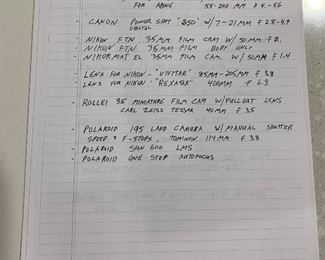 FOR ABOVE 55-200 MM F 4-56
- CANON POWER SHOT "S50" W/ 7-21MM F 2.8-4.9
DIGITAL
- NIKON FTN 35MM FILM CAM W/ 50MM F 2.
- NIKON FTN 35 MM FILM BODY ONLY
- NIKORMAT EL 35MM FILM CAM. W/ 50MM F 1.4
- LENS FOR NIKON - "UNITAR" 85MM-205MM F 3.8
- LENS FOR NIKON - "REXATAR" 400MM F 6.3
- ROLLEI 35 MINIATURE FILM CAM W/ PULLOUT LENS
CARL ZEISS TESSAR 40MM F 3.5
- POLAROID 195 LAND CAMERA W/ MANUAL SHUTTER
SPEED & F-STOPS, TOMINON 114 MM F 3.8
- POLAROID SUN 600 LMS
- POLAROID ONE STEP AUTOFOCUS